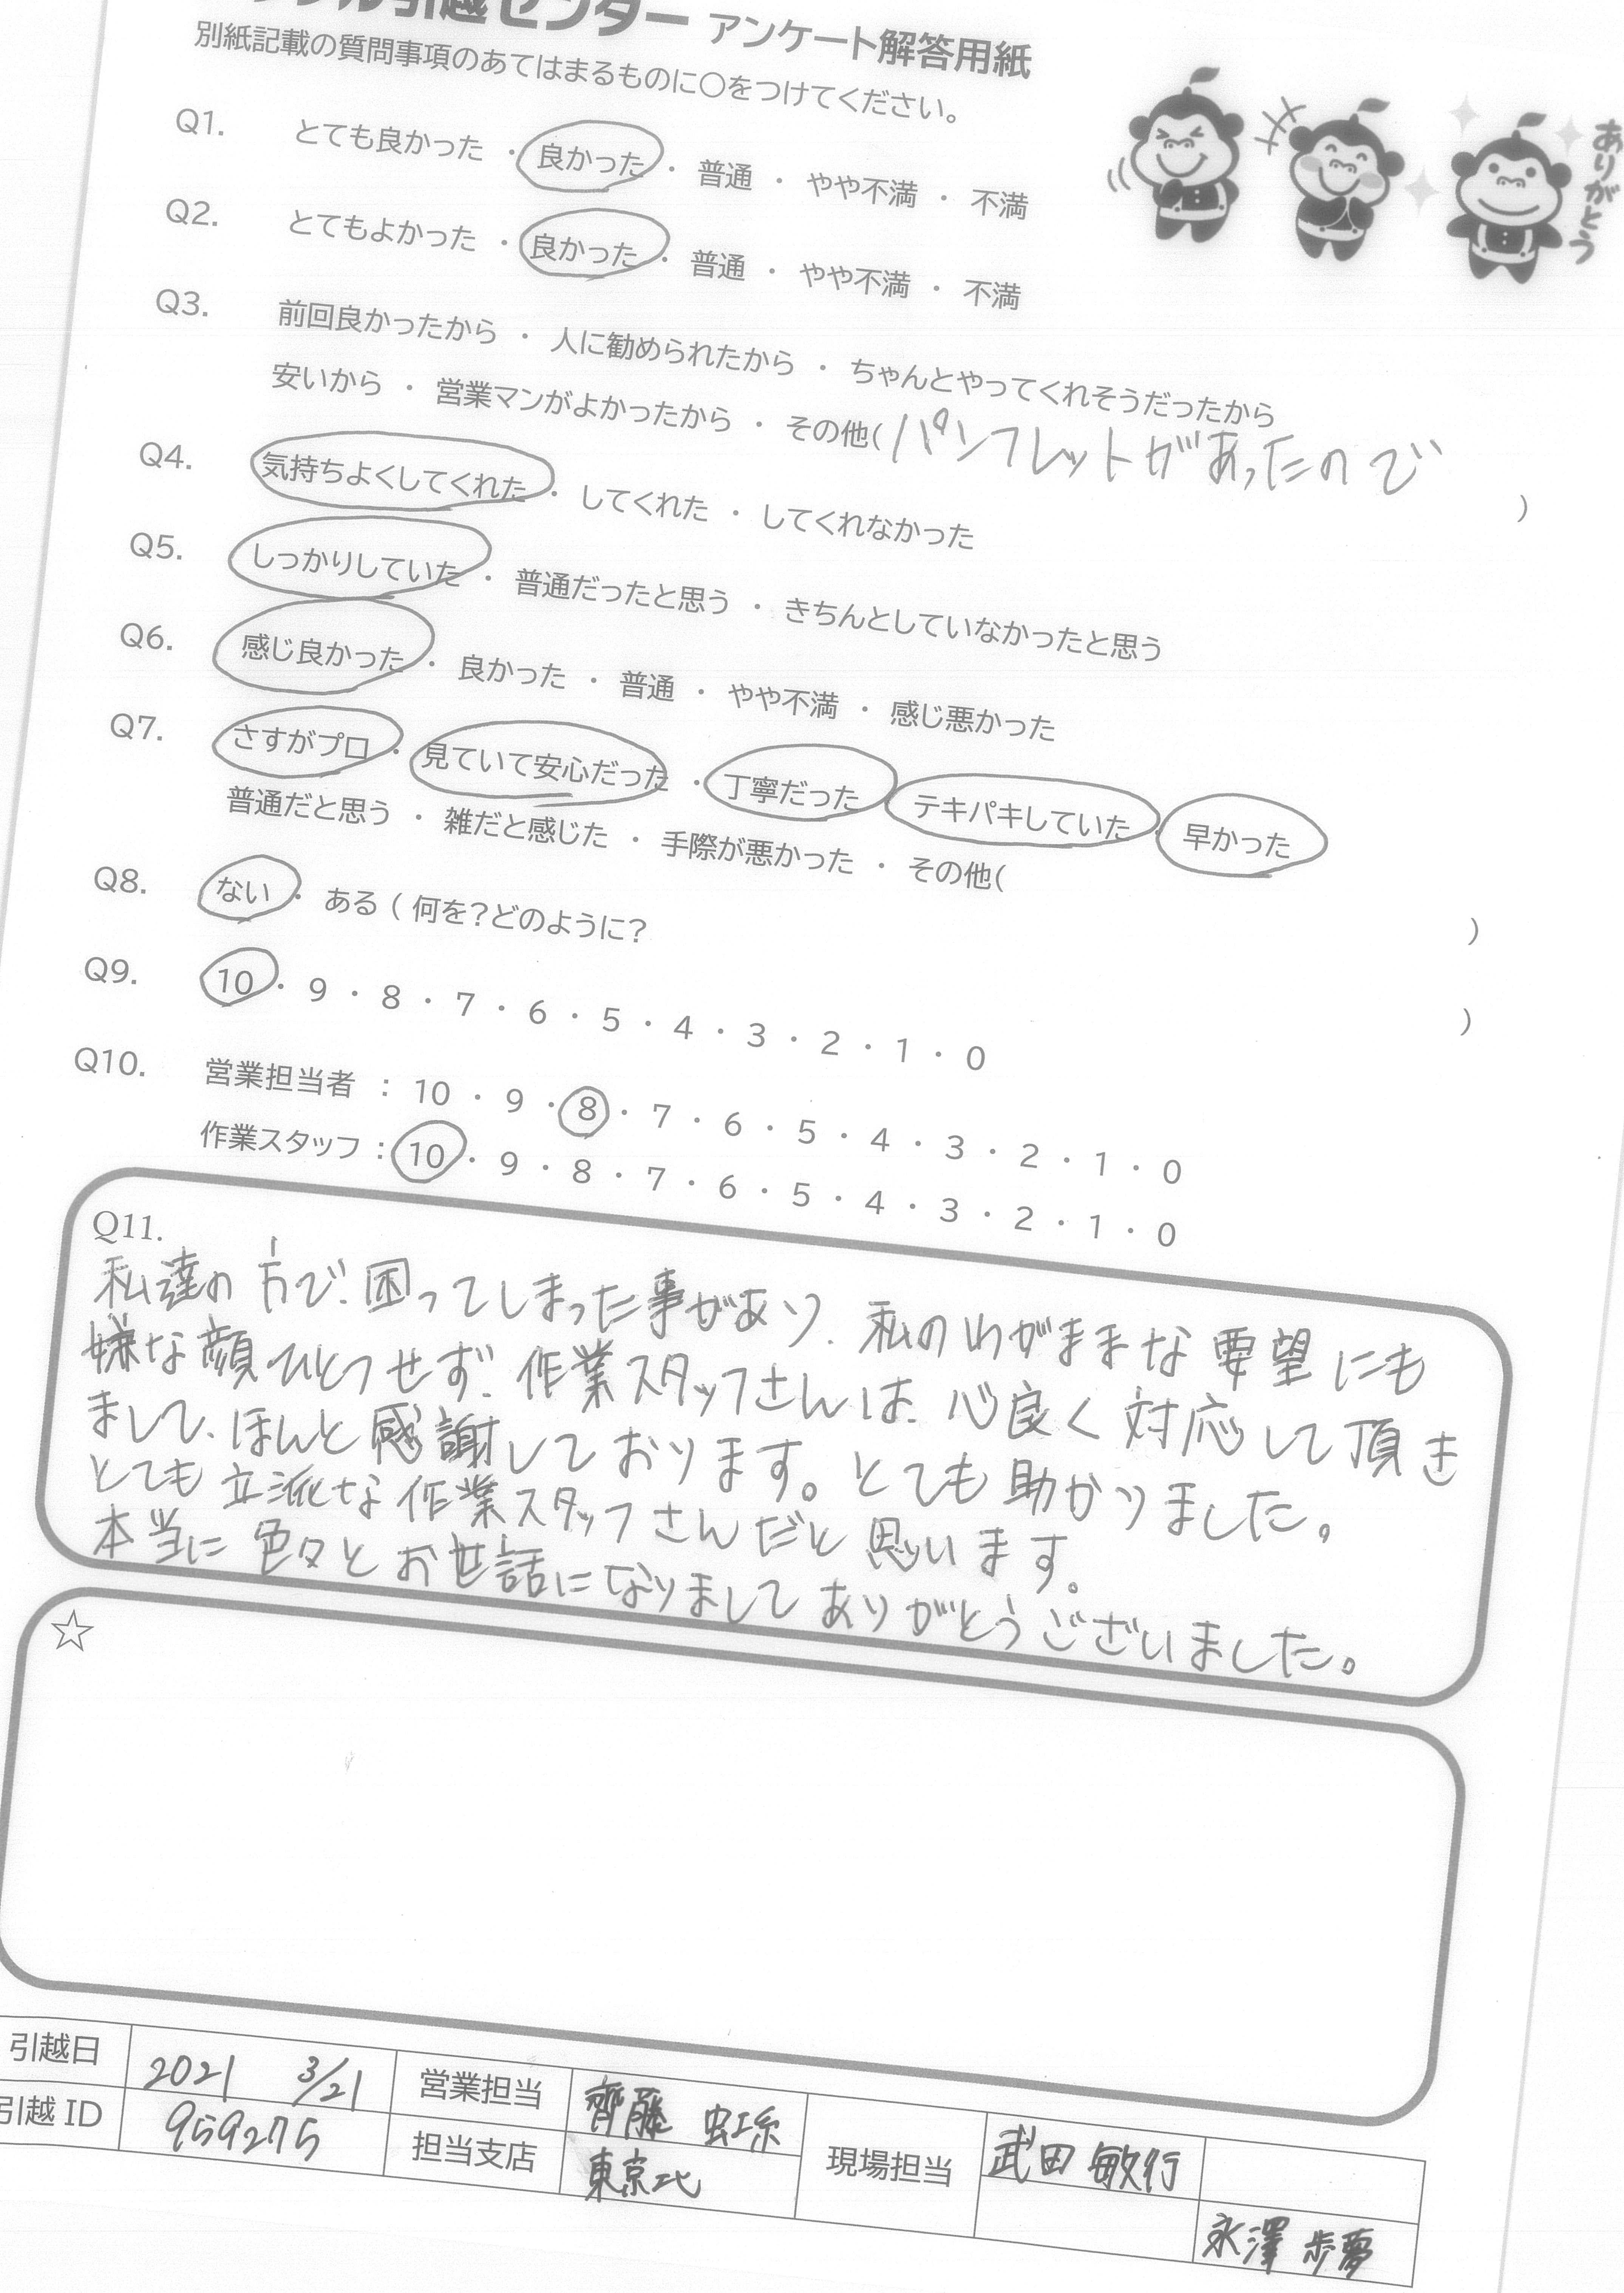 引越センター アンケート解答用紙
別紙記載の質問事項のあてはまるものに○をつけてください。
ありがとう
Q1. とても良かった ・ 良かった ・ 普通 ・ やや不満 ・ 不満
Q2. とてもよかった ・ 良かった ・ 普通 ・ やや不満 ・ 不満
Q3. 前回良かったから ・ 人に勧められたから ・ ちゃんとやってくれそうだったから
安いから ・ 営業マンがよかったから ・ その他( パンフレットがあったので )
Q4. 気持ちよくしてくれた ・ してくれた ・ してくれなかった
Q5. しっかりしていた ・ 普通だったと思う ・ きちんとしていなかったと思う
Q6. 感じ良かった ・ 良かった ・ 普通 ・ やや不満 ・ 感じ悪かった
Q7. さすがプロ ・ 見ていて安心だった ・ 丁寧だった ・ テキパキしていた ・ 早かった
普通だと思う ・ 雑だと感じた ・ 手際が悪かった ・ その他( )
Q8. ない ・ ある ( 何を?どのように? )
Q9. 10 ・ 9 ・ 8 ・ 7 ・ 6 ・ 5 ・ 4 ・ 3 ・ 2 ・ 1 ・ 0
Q10. 営業担当者 : 10 ・ 9 ・ 8 ・ 7 ・ 6 ・ 5 ・ 4 ・ 3 ・ 2 ・ 1 ・ 0
作業スタッフ : 10 ・ 9 ・ 8 ・ 7 ・ 6 ・ 5 ・ 4 ・ 3 ・ 2 ・ 1 ・ 0
Q11.
私達の方で、困ってしまった事があり、私のわがままな要望にも
嫌な顔ひとつせず、作業スタッフさんは、心良く対応して頂き
まして、ほんと感謝しております。とても助かりました。
とても立派な作業スタッフさんだと思います。
本当に色々とお世話になりましてありがとうございました。
☆
引越日 2021 3/21 営業担当 齊藤 虹糸 現場担当 武田 敏行
引越 ID 959275 担当支店 東京北 永澤 歩夢